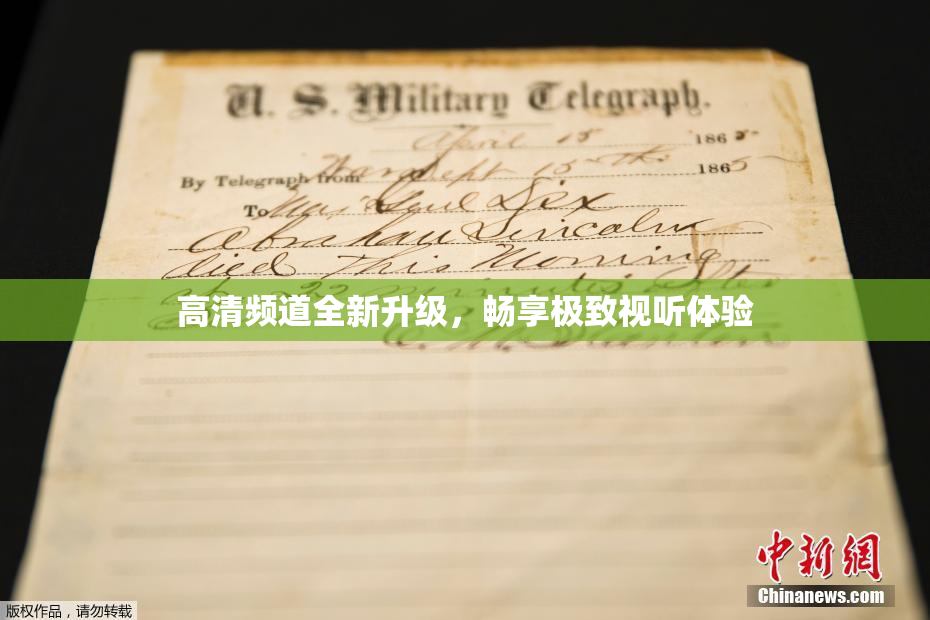 U. S. Military Telegraph.
April 15 1865
By Telegraph from War Dept 15th 1865
To Maj Genl Dix
Abraham Lincoln
died This Morning
22 minutes after
高清频道全新升级，畅享极致视听体验
E. M. Stanton
中新網
Chinanews.com
版权作品，请勿转载